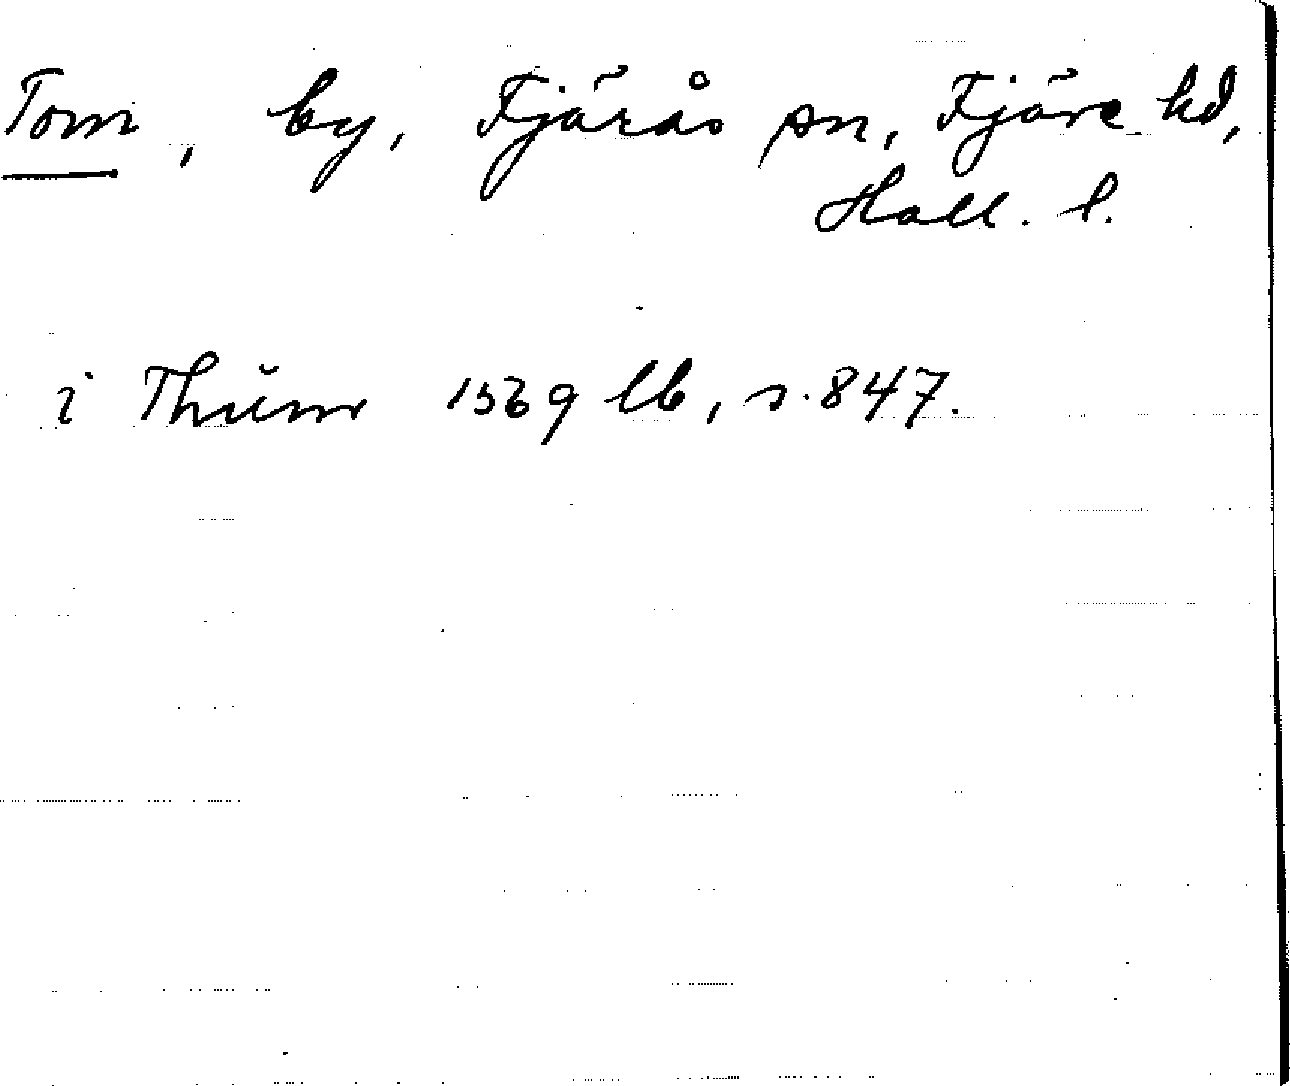 Tom, by, Fjärås sn, Fjäre hd,
Hall. l.
i Thŭm 1569 lb, s. 847.